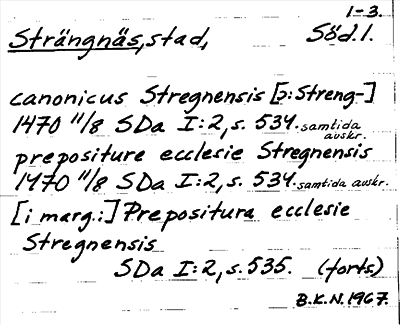 1-3.
Strängnäs, stad, Söd. l.
canonicus Stregnensis [ɔ: Streng-]
1470 11/8 SDa I:2, s. 534. samtida avskr.
prepositure ecclesie Stregnensis
1470 11/8 SDa I:2, s. 534. samtida avskr.
[i marg.:] Prepositura ecclesie
Stregnensis
SDa I:2, s. 535. (forts)
B.K.N. 1967.